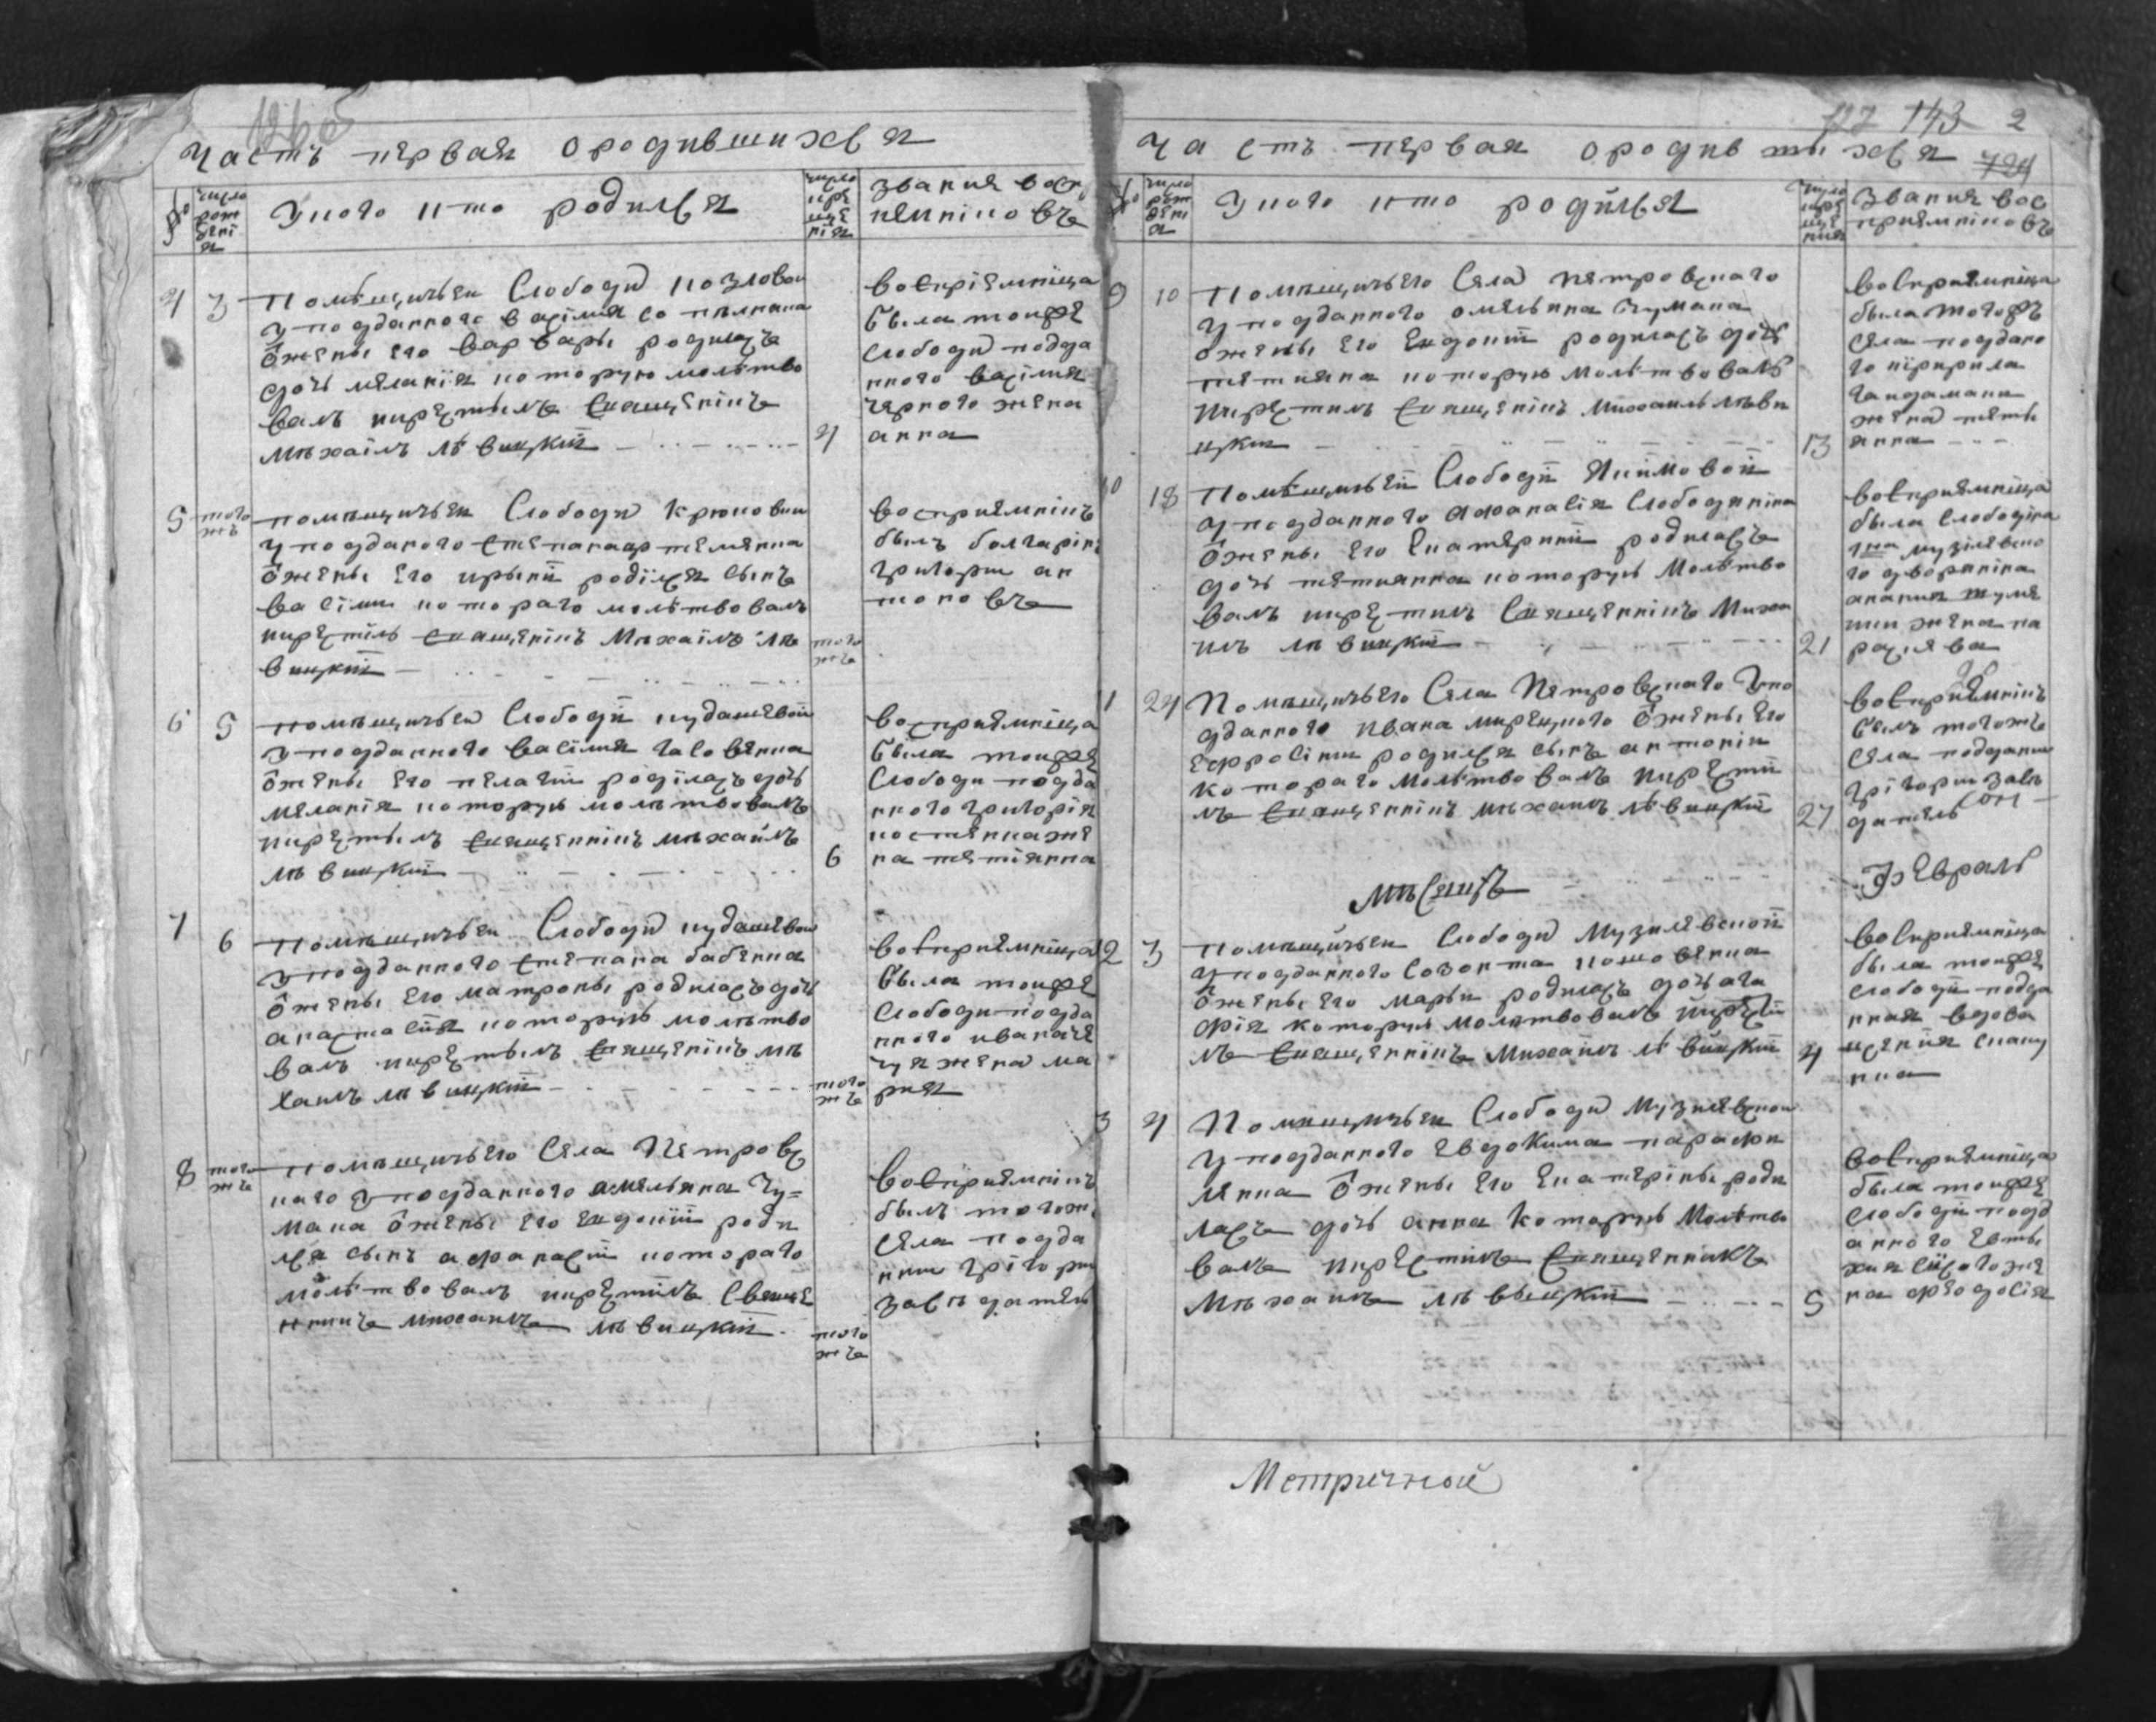 Часть первая о родившихся
число рожденія
У кого кто родился
число крещенія
званія воспріемниковъ
4
3
Помѣщичьеи Слободы Козловои
у подданного Василия
и жены его Варвары родиласъ
дочь Меланія которую молѣтво
валъ и крестылъ Священікъ
Мѣхаілъ Лѣвицкій
4
воспріемніца
была тоижъ
слободы подда
нного Василия
черного жена
анна
5
того жъ
помѣщичьеи Слободы Крюковои
уподданого Степана
и жены его Ирыны роділся сынъ
Васілии которого молѣтвовалъ
и крестіль Священікъ Мѣхаілъ Лѣ
вицкій
того же
воспріемнікъ
былъ болгарінъ
Григории ан
тоновъ
6
5
помѣщичьеи Слободы Кудашевои
у подданного Васілия
и жены его Пелагіи роділасъ дочь
Меланія которую молѣтвовалъ
и крестылъ Священнікъ Мѣхаилъ
Лѣвицкій
6
воспріемніца
была тоижъ
Слободы подда
нного Григорія
костенка же
на тетіянна
7
6
Помѣщичьеи Слободы Кудашевои
у подданного Степана бабенка
и жены его Матроны родиласъ дочь
анастасія которую молѣтво
валъ и крестылъ Священікъ Мѣ
хаилъ Лѣвицкій
того же
воспріемніца
была тоижъ
Слободы подда
нного Ивана
жена ма
рия
8
того же
помѣщичьего Села Петровс
кого у подданного амельяна Чу=
мана и жены его Евдокіи роди
лся сынъ афанасіи которого
молѣтвовалъ и крестилъ Священ
никъ Михаилъ Лѣвицкій
того же
воспріемнікъ
былъ того ж
Села подда
нии Грігории
завѣдатель
Часть первая о родившихся
127 143 2
724
число рожденія
У кого кто родился
число крещения
Звания вос
приемніковъ
9
10
Помѣщичьего Села Петровского
у подданного омельяна Чумана
и жены его Евдокіи родиласъ дочь
тетияна которую молѣтвовалъ
и крестилъ Священікъ Михаилъ Лѣви
цкии
13
воспріемніца
была тогожъ
Села поддано
го Кіририла
гаидамаки
жена тети
янна
10
18
Помѣщичьеи Слободы Якимовои
у подданного афанасія Слободяніка
и жены его Екатерины родиласъ
дочь тетиянна которую молѣтво
валъ и крестилъ Священнікъ Миха
илъ Лѣвицкій
21
воспріемніца
была Слободы
музілевско
го дворяніна
жена па
расева
11
24
Помѣщичьего Села Петровского у по
дданного Ивана и жены его
Ефросіны родился сынъ антонін
которого молѣтвовалъ и крести
лъ Священнікъ Михаилъ Лѣвицкій
27
воспріемнікъ
былъ тогожъ
Села подданыи
Грігории завѣ
датель
Мѣсяцъ
Февраль
12
3
Помѣщичьеи Слободы Музилевскои
у подданного Созонта
и жены его Марьи родиласъ дочь ага
фія которую молитвовалъ и крести
лъ Священнікъ Михаилъ Лѣвицкій
4
воспріемніца
была тоижъ
Слободы подда
нная вдова
13
4
Помѣщичьеи Слободы Музилевскои
у подданного Евдокима парафи
менка и жены его Екатеріны роди
ласъ дочь анна которую молѣтво
валъ и крестилъ Священникъ
Мѣхаилъ Лѣвыцкій
5
воспріемніца
была тоижъ
слободы подд
анного Евты
хия же
на феодосія
Метричной